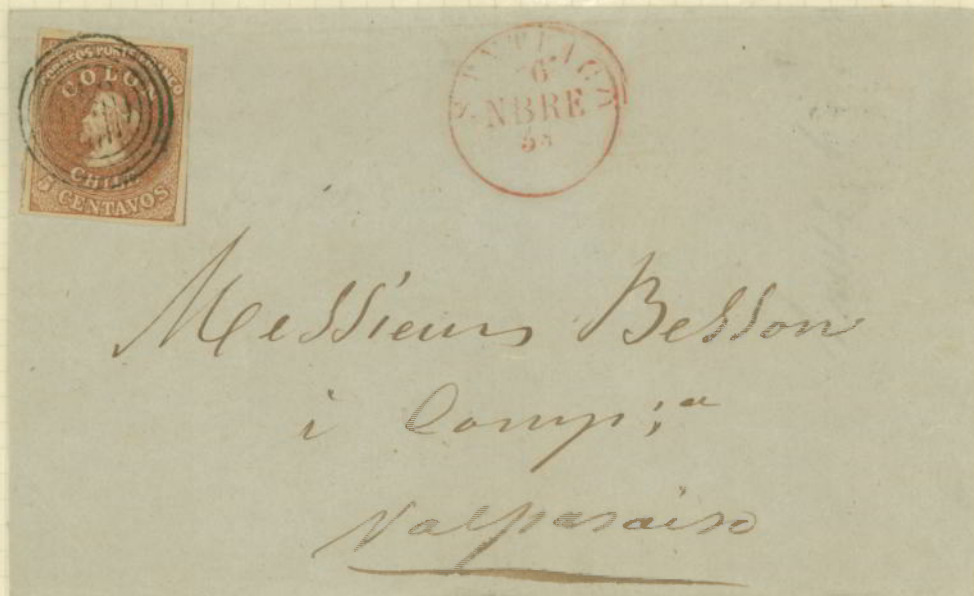 CORREOS PORTE FRANCO
COLON
CHILE
5 CENTAVOS
SANTIAGO
6
NBRE
Messieurs Besson
i Comp:a
Valparaiso